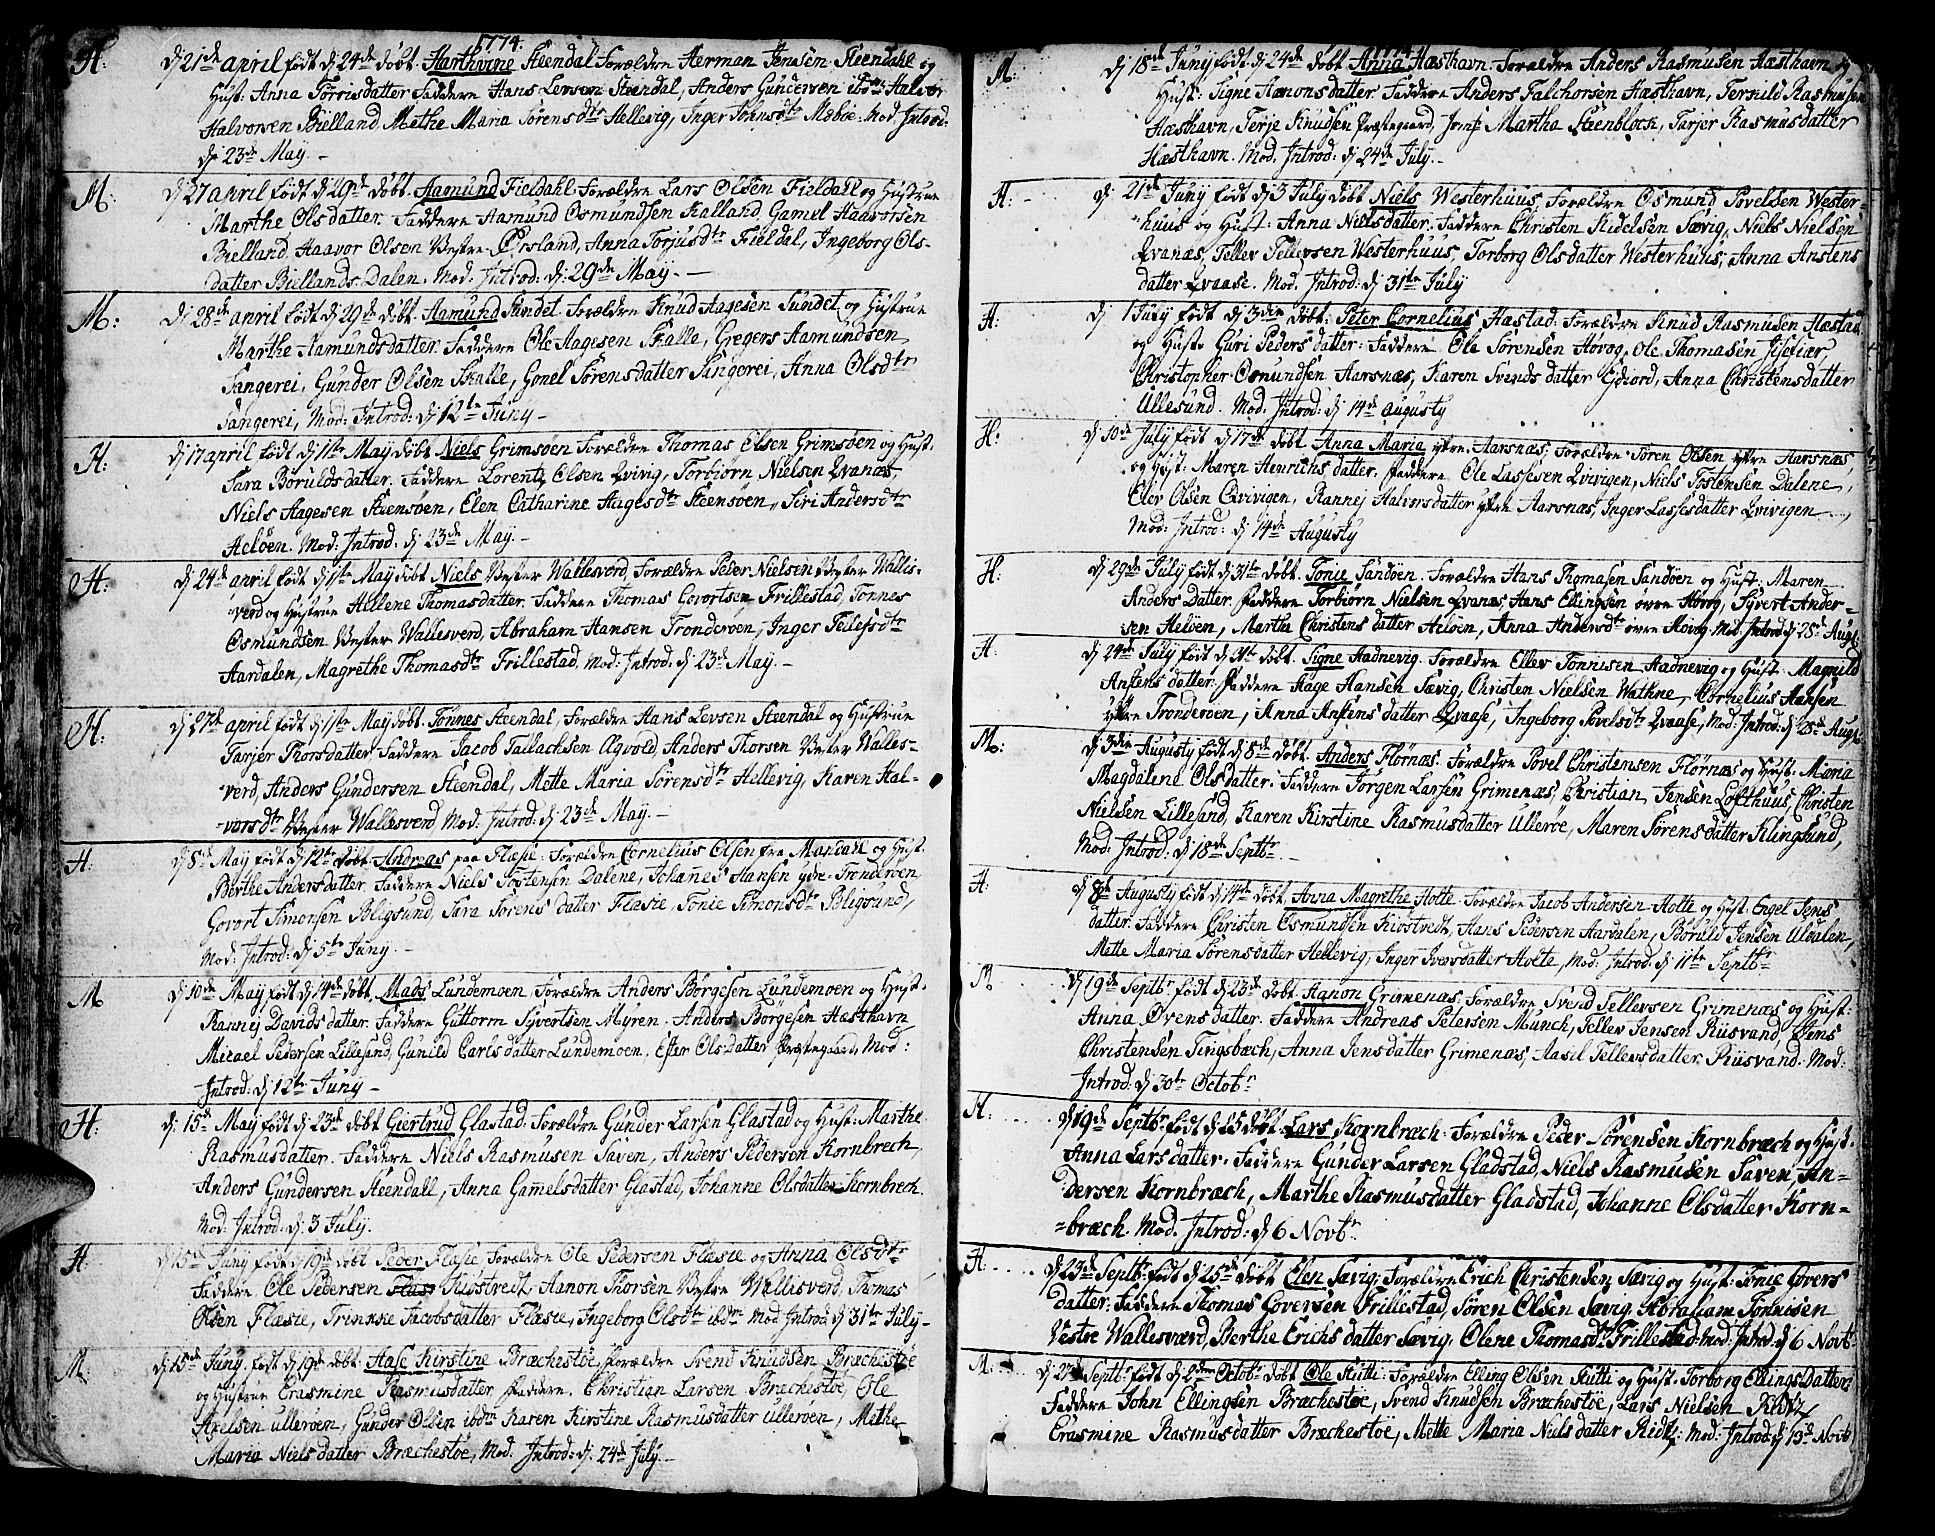 1774.
H. dj 21de april født dj 24de døbt. Harthvine Steendal Forældre Herman Jensen Steendahl og
Hust: Anna Torrisdatter Faddere Hans Levsen Steendal, Anders Gundersen ibdm Halvor
Halvorsen Bielland Methe Maria Sørensdtr Hellevig, Inger Johnsdtr Mebøe. Mod. Introd:
dj 23de May. -
M: dj 27 april født dj 29de døbt. Aamund Fieldahl. Forældre Lars Olsen Fieldahl og Hustrue
Marthe Olsdatter. Faddere Aamund Osmundsen Kalland, Gamel Haavorsen
Bielland, Haavor Olsen Vestre Øvsland, Anna Torjusdtr Fieldal, Ingeborg Ols-
datter Biellands Dalen. Mod. Introd: dj 29de May. -
M: dj 28de april født dj 29de døbt. Aamund Sundet. Forældre Knud Aagesen Sundet og Hustrue
Marthe Aamundsdatter. Faddere Ole Aagesen Skalle, Gregers Aamundsen
Sangerei, Gunder Olsen Skalle, Gonel Sørensdatter Sangerei, Anna Olsdtr
Sangerei, Mod: Introd: dj 12te Juny -
H. dj 17 april født dj 1ste May døbt. Niels Grimsøen Forældre Thomas Olsen Grimsøen og Hust.
Sara Børuldsdatter. Faddere Lorentz Olsen Qvivig, Torbjørn Nielsen Qvanæs,
Niels Aagesen Steensøen, Elen Catharine Aagesdtr Steensøen, Siri Andersdtr
Heløen. Mod: Introd: dj 23de May. -
H. dj 24de april født dj 1ste May døbt Niels Vestre Wallesverd, Forældre Peder Nielsen Vestre Wallis-
verd og Hustrue Hellene Thomasdatter. Faddere Thomas Govertsen Frillestad, Tønnes
Osmundsen Vestre Wallesverd, Abraham Hansen Tronderøen, Inger Tellefsdtr
Aardalen, Magrethe Thomasdtr Frillestad. Mod: Introd: dj 23de May. -
H: dj 27de april født dj 1ste May døbt. Tønnes Steendal, Forældre Hans Levsen Steendal og Hustrue
Tarjer Thorsdatter, Faddere Jacob Tallachsen Agvold, Anders Thorsen Vester Walles-
verd, Anders Gundersen Steendal, Mette Maria Sørensdtr Hellevig, Karen Hal-
-vorsdtr Vester Wallesverd Mod: Introd: dj 23de May. -
H. dj 8de May født dj 12te døbt. Andreas paa Flæsie: Forældre Cornelius Olsen fra Mandahl og Hust.
Berthe Andersdatter. Faddere Niels Tostensen Dalene, Johanes Hansen ydre Tronderøen
Govert Simonsen Bligsund, Sara Sørens datter Flæsie, Tonie Simonsdtr Bligsund,
Mod: Introd: dj 5te Juny. -
M dj 10de May født dj 14de døbt, Mads Lundemoen Forældre Anders Børgesen Lundemoen og Hust.
Rannej Davids datter. Faddere Guttorm Syvertsen Myren. Anders Børgesen Hæsthavn
Micael Pedersen Lillesand, Gunild Carls datter Lundemoen, Ester Olsdatter Præstegaard Mod:
Introd: dj 12te Juny -
H. dj: 15de May født dj 23de døbt Giertrud Glastad. Forældre Gunder Larsen Glastad og Hust: Marthe
Rasmusdatter. Faddere Niels Rasmusen Saven, Anders Pedersen Kornbrech,
Anders Gundersen Steendall, Anna Gamelsdatter Glastad, Johanne Olsdatter Kornbrech.
Mod: Introd: dj 3 July.
H. dj 15de Juny født dj 19de døbt. Peder Flæsie, Forældre Ole Pedersen Flæsie og Anna Olsdtr
Faddere Ole Pedersen Kiøstvedt, Aanon Thorsen Vestre Wallisverd, Thomas
Olsen Flæsie, Trinnve Jacobsdatter Flæsie, Ingeborg Olsdtr ibdm Mod Introd dj 31te July -
M. dj 15de Juny født dj 19de døbt. Aase Kirstine Bræchestøe, forældre Svend Knudsen Bræchestøe
og Hustrue Erasmine Rasmusdatter, Faddere. Christian Larsen Bræchestøe, Ole
Axelsen ulleröen, Gunder Olsen ibdm Karen Kirstine Rasmusdatter ulleröen, Methe
Maria Niels datter Bræchestøe, Mod. Introd: dj: 24de July. -
1774.
M: dj 18de Juny født dj 24de døbt Anna Hæsthavn. Forældre Anders Rasmusen Hæsthavn og
Hust: Signe Aanonsdatter. Faddere Anders Falchorsen Hæsthavn, Terkild Rasmusen
Hæsthavn, Terje Knudsen Præstegaard, Jomf Martha Steenblock, Tarjer Rasmusdatter
Hæsthavn. Mod. Introd: dj 24de July. -
H: dj: 21de Juny født dj 3 July døbt Niels Westerhuus, Forældre Osmund Povelsen Wester-
huus og Hust: Anna Nielsdatter. Faddere Christen Kidelsen Sævig, Niels Nielsen
Qvanæs, Tellev Tellevsen Westerhuus, Torborg Olsdatter Westerhuus, Anna Anstens
datter Qvaase. Mod. Introd: dj 31te July
H: dj 1 July født dj 3die døbt: Peter Cornelius Hæstad. Forældre Knud Rasmusen Hæstad
og Hust: Guri Peders datter: Faddere Ole Sørensen Hovog, Ole Thomasen Jisefiær,
Christopher Osmundsen Aarsnæs, Karen Svends datter Eidjord, Anna Christensdatter
Ullesund. Mod. Introd: dj 14de augusty
H: dj 10de July født dj 17de døbt Anna Maria yttre Aarsnæs. Forældre Søren Olsen yttre Aarsnæs
og Hust: Maren Henrichs datter. Faddere Ole Lassesen Qvivigen, Niels Tostensen Dalene,
Elev Olsen Qvivigen, Rannej Halvorsdatter yttre Aarsnæs, Inger Lassesdatter Qvivigen,
Mod: Introd: dj 14de Augusty
H: dj 29de July født dj 31te døbt. Tonie Sandøen. Forældre Hans Thomasen Sandøen og Hust: Maren
Anders Datter. Faddere Torbiørn Nielsen Qvanæs, Hans Ellingsen øvre Hovog, Syvert Ander-
sen Heløen, Martha Christens datter Heløen, Anna Andersdtr øvre Hovog. Mod. Introd: dj 28de Augt.
H. dj 24de July født dj 31te døbt. Signe Aadnevig. Forældre Ellev Tønnisen Aadnevig og Hust. Magnild
Anstens datter. Faddere Aage Hansen Sævig, Christen Nielsen Wathne, Cornelius Hansen
yttre Tronderøen, Anna Anstens datter Qvaase, Ingeborg Povelsdtr Qvaase, Mod: Introd: dj 28de Augt.
M: dj 3die Augusty født dj 8de døbt. Anders Flørnæs. Forældre Povel Christensen Flørnæs og Hust. Maria
Magdalene Olsdatter. Faddere Jørgen Larsen Grimenæs, Christian Jensen Lofthuus, Christen
Nielsen Lillesand, Karen Kirstine Rasmusdatter Ulleröe, Maren Sørensdatter Klingsund,
Mod: Introd: dj 18de Septbr. -
H: dj 8de Augusty født dj 14de døbt, Anna Magrethe Holte. Forældre Jacob Andersen Holte og Hust. Engel Jens
datter. Faddere Christen Osmundsen Kiøstvedt, Hans Pedersen Aardalen, Børuld Jensen Uldalen,
Mette Maria Sørensdatter Hellevig, Inger Iversdatter Holte, Mod. Introd. dj 11te Septbr
M dj 19de Septbr født dj 23de døbt. Aanon Grimenæs. Forældre Svend Tellevsen Grimenæs og Hust:
Anna Ovensdatter. Faddere Andreas Petersen Munch, Tellev Jensen Riisvand, Jens
Christensen Tingsbæch, Anna Jensdatter Grimenæs, Aasil Tellevsdatter Riisvand. Mod:
Introd: dj 30te Octobr
H: dj 19de Septbr født dj 25 døbt Lars Kornbræch. Forældre Peder Sørensen Kornbræch og Hust.
Anna Lars datter. Faddere Gunder Larsen Gladstad, Niels Rasmusen Saven, An-
dersen Kornbræch, Marthe Rasmusdatter Gladstad, Johanne Olsdatter Korn-
-bræch. Mod. Introd: dj 6 Novbr.
H. dj 23de Septbr født dj 25de døbt Elen Sævig. Forældre Erich Christensen Sævig og Hust: Tonie Govers
datter. Faddere Thomas Goversen Frillestad, Søren Olsen Sævig, Abraham Tønnisen
Vestre Wallesværd, Berthe Erichs datter Sævig, Olene Thomasdtr Frillestad. Mod: Introd: dj 6 Novbr
M. dj 23de Septbr født dj 2den Octobr døbt Ole Kutti: Forældre Elling Olsen Kutti og Hust. Torborg Ellings Datter
Faddere John Ellingsen Bræchestøe, Svend Knudsen Bræchestøe, Lars Nielsen Riditz
Erasmine Rasmusdatter Bræchestöe, Mette Maria Niels datter Riditz: Mod: Introd: dj 13de Novbr